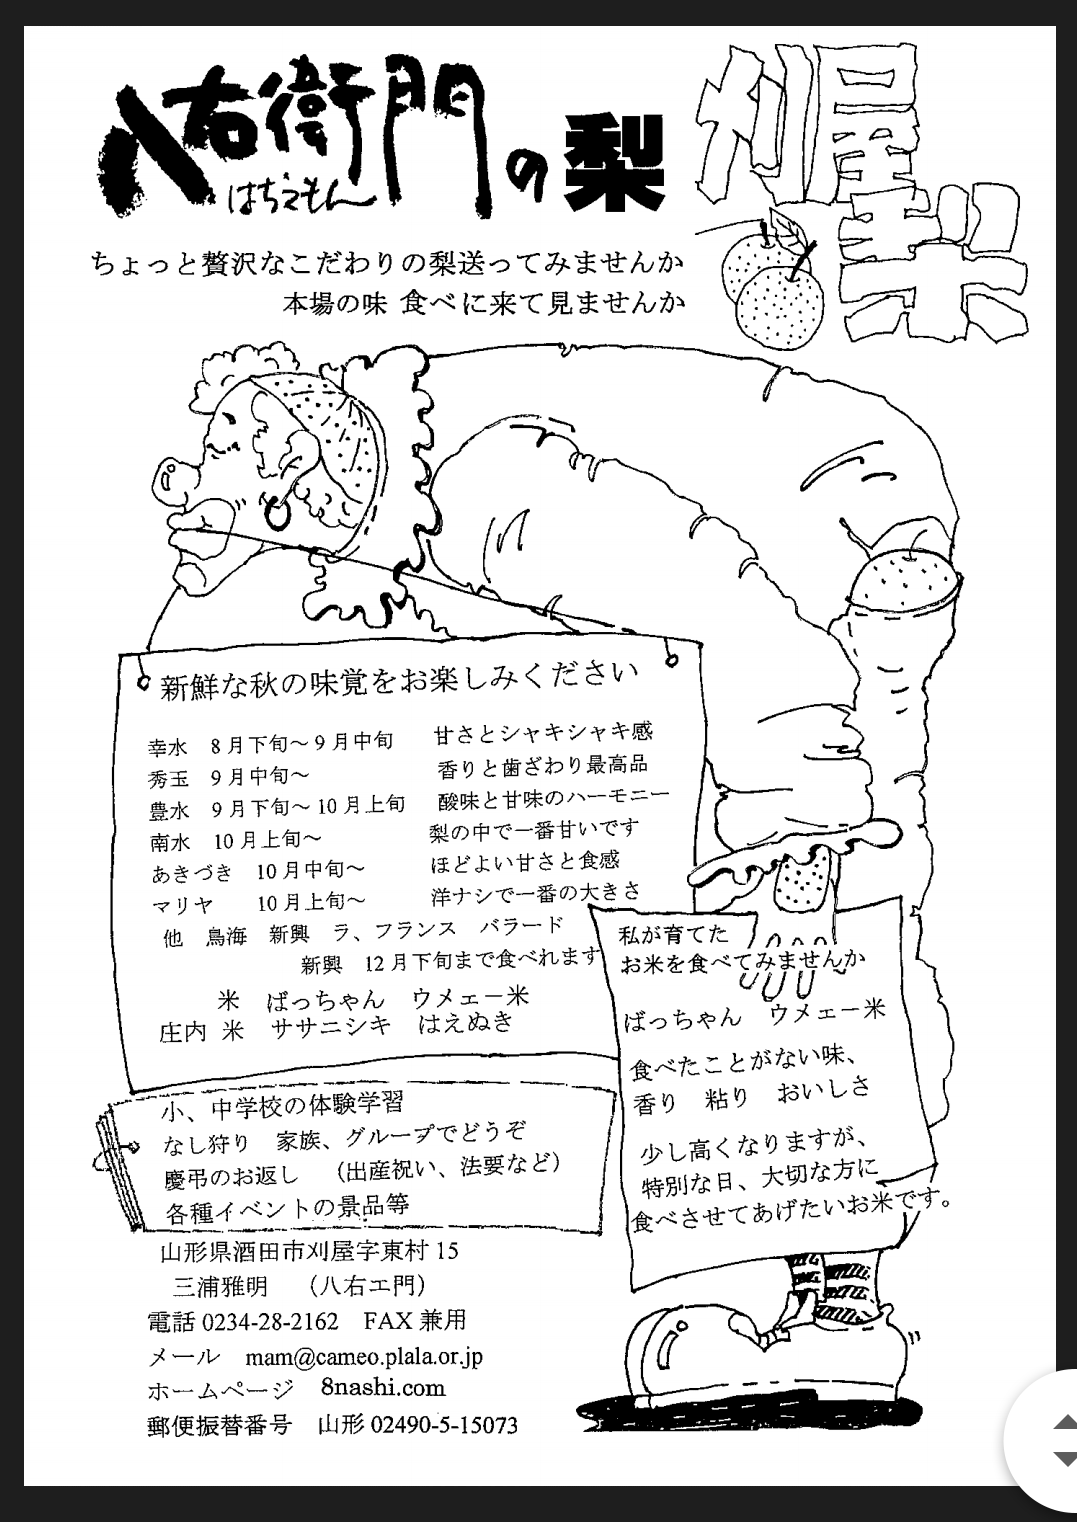 八右衛門の梨
はちえもん
刈屋
梨
ちょっと贅沢なこだわりの梨送ってみませんか
本場の味 食べに来て見ませんか
新鮮な秋の味覚をお楽しみください
幸水 8月下旬～9月中旬 甘さとシャキシャキ感
秀玉 9月中旬～ 香りと歯ざわり最高品
豊水 9月下旬～10月上旬 酸味と甘味のハーモニー
南水 10月上旬～ 梨の中で一番甘いです
あきづき 10月中旬～ ほどよい甘さと食感
マリヤ 10月上旬～ 洋ナシで一番の大きさ
他 鳥海 新興 ラ、フランス バラード
新興 12月下旬まで食べれます
米 ばっちゃん ウメェー米
庄内 米 ササニシキ はえぬき
私が育てた
お米を食べてみませんか
ばっちゃん ウメェー米
食べたことがない味、
香り 粘り おいしさ
少し高くなりますが、
特別な日、大切な方に
食べさせてあげたいお米です。
小、中学校の体験学習
なし狩り 家族、グループでどうぞ
慶弔のお返し （出産祝い、法要など）
各種イベントの景品等
山形県酒田市刈屋字東村15
三浦雅明 （八右エ門）
電話 0234-28-2162 FAX 兼用
メール mam@cameo.plala.or.jp
ホームページ 8nashi.com
郵便振替番号 山形 02490-5-15073